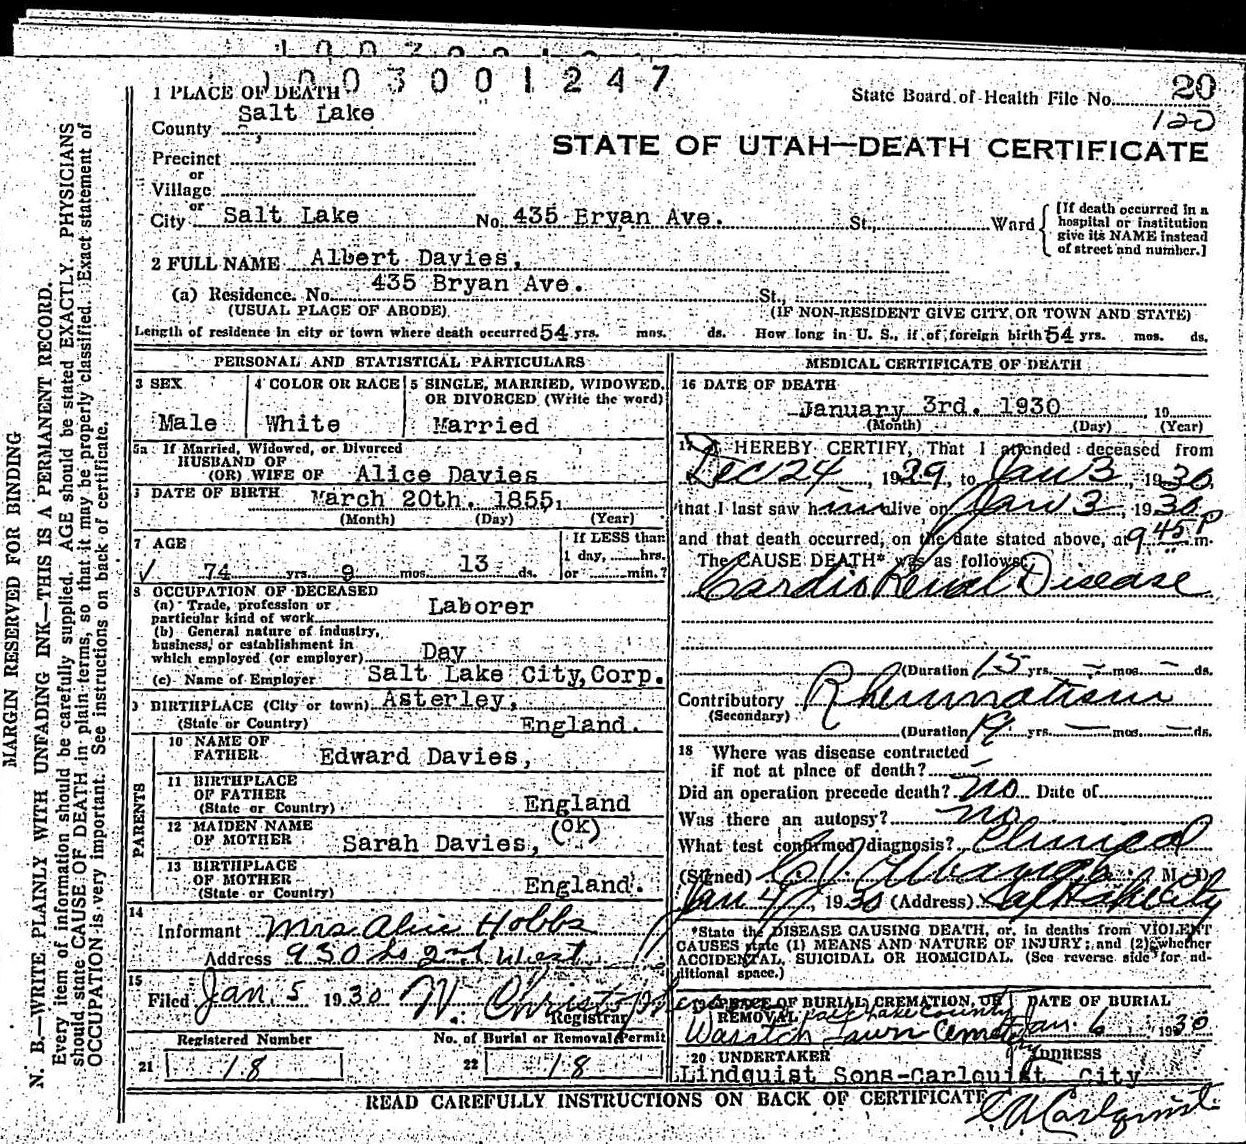 1003001247
1 PLACE OF DEATH
State Board of Health File No. 20
120
County Salt Lake
STATE OF UTAH—DEATH CERTIFICATE
Precinct
or
Village
or
City Salt Lake No. 435 Bryan Ave. St., Ward
[If death occurred in a hospital or institution give its NAME instead of street and number.]
2 FULL NAME Albert Davies,
(a) Residence. No. 435 Bryan Ave. St.,
(USUAL PLACE OF ABODE) (IF NON-RESIDENT GIVE CITY OR TOWN AND STATE)
Length of residence in city or town where death occurred 54 yrs. mos. ds. How long in U. S., if of foreign birth 54 yrs. mos. ds.
PERSONAL AND STATISTICAL PARTICULARS
3 SEX
Male
4 COLOR OR RACE
White
5 SINGLE, MARRIED, WIDOWED, OR DIVORCED (Write the word)
Married
5a If Married, Widowed, or Divorced
HUSBAND OF
(OR) WIFE OF Alice Davies
DATE OF BIRTH March 20th. 1855,
(Month) (Day) (Year)
7 AGE
74 yrs. 9 mos. 13 ds.
If LESS than
1 day, hrs.
or min.?
8 OCCUPATION OF DECEASED
(a) Trade, profession or
particular kind of work Laborer
(b) General nature of industry,
business, or establishment in
which employed (or employer) Day
(c) Name of Employer Salt Lake City, Corp.
9 BIRTHPLACE (City or town) Asterley,
(State or Country) England.
PARENTS
10 NAME OF
FATHER Edward Davies,
11 BIRTHPLACE
OF FATHER
(State or Country) England
12 MAIDEN NAME
OF MOTHER Sarah Davies, (OK)
13 BIRTHPLACE
OF MOTHER
(State or Country) England.
14
Informant Mrs Alice Hobbs
Address 930 So 2nd West
15
Filed Jan. 5 1930
Registrar
Registered Number
21 18
No. of Burial or Removal Permit
22 18
MEDICAL CERTIFICATE OF DEATH
16 DATE OF DEATH
January 3rd. 1930, 19
(Month) (Day) (Year)
17 I HEREBY CERTIFY, That I attended deceased from
Dec 24, 1929, to Jan 3, 1930,
that I last saw him alive on Jan 3, 1930
and that death occurred, on the date stated above, at 9 45 P m.
The CAUSE DEATH* was as follows:
Cardio Renal Disease
(Duration 15 yrs. — mos. — ds.
Contributory Rheumatism
(Secondary)
(Duration 19 yrs. — mos. — ds.
18 Where was disease contracted
if not at place of death? —
Did an operation precede death? no Date of
Was there an autopsy? no
What test confirmed diagnosis? Clinical
(Signed) M. D.
Jan 4, 1930 (Address) Salt Lake City
*State the DISEASE CAUSING DEATH, or, in deaths from VIOLENT
CAUSES state (1) MEANS AND NATURE OF INJURY; and (2) whether
ACCIDENTAL, SUICIDAL OR HOMICIDAL. (See reverse side for additional space.)
19 PLACE OF BURIAL, CREMATION, OR
REMOVAL Salt Lake County
Wasatch Lawn Cemetery
DATE OF BURIAL
Jan. 6 1930
20 UNDERTAKER ADDRESS
Lindquist Sons-Carlquist City
READ CAREFULLY INSTRUCTIONS ON BACK OF CERTIFICATE
MARGIN RESERVED FOR BINDING
N. B.—WRITE PLAINLY WITH UNFADING INK—THIS IS A PERMANENT RECORD.
Every item of information should be carefully supplied. AGE should be stated EXACTLY. PHYSICIANS
should state CAUSE OF DEATH in plain terms, so that it may be properly classified. Exact statement of
OCCUPATION is very important. See instructions on back of certificate.